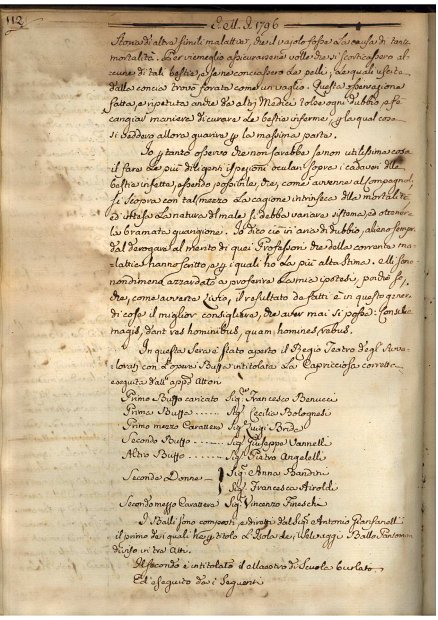 112
E. M. D. 1796
Storia di altre simili malattie, che il vajolo fosse la causa di tanta
mortalità. Per vie meglio assicurarsene volle che si scorticassero al=
cune di tali bestie, e se ne conciassero le pelli, le quali uscite
dalla concia trovò forate come un vaglio. Questa osservazione
fatta, e ripetuta anche da altri Medici tolse ogni dubbio, e fe
cangiar maniera di curare le bestie inferme, p la qual cosa
si viddero allora guarire p la massima parte.
Io p tanto osservo che non sarebbe se non utilissima cosa
il fare le più diligenti ispezioni oculari sopra i cadaveri delle
bestie infette, essendo possibile, che, come avvenne al Compagnoni,
si scopra con tal mezzo la cagione intrinseca della mortalità,
ed attesa la natura del male si debba variare sistema ad ottenere
la bramata guarigione. Io dico ciò in aria di dubbio, alieno sempre
dal derogare al merito di quei Professori che della corrente ma=
lattia hanno scritto, e p i quali ho la più alta stima. Mi sono
nondimeno azzardato a proferire la mia ipotesi, poichè so,
che, come avverte Livio, il resultato da fatti è in questo genere
di cose il miglior consigliere, che aver mai si possa: Consilia
magis, dant res hominibus, quam, homines, rebus.
In questa sera è stato aperto il Regio Teatro degl' Avva=
lorati con l'opera Buffa intitolata La Capricciosa corretta
eseguita dall' app.o Attori
Primo Buffo caricato Sig.r Francesco Benucci
Prima Buffa ...... Sig.a Cecilia Bolognesi
Primo mezzo Carattere Sig.r Luigi Brida
Secondo Buffo ..... Sig.r Giuseppe Vannelli
Altro Buffo ..... Sig.r Pietro Angelelli
Seconde Donne
Sig.a Anna Bandini
Sig.a Francesca Airoldi
Secondo mezzo Carattere Sig.r Vincenzo Fineschi
I Balli sono composti, e diretti dal Sig.r Antonio Gianfanelli
il primo dei quali ha p titolo L'Isola dei Selvaggi Ballo Pantomimo
diviso in tre Atti.
Il secondo è intitolato il Maestro di Scuola burlato
Ed eseguito dai seguenti